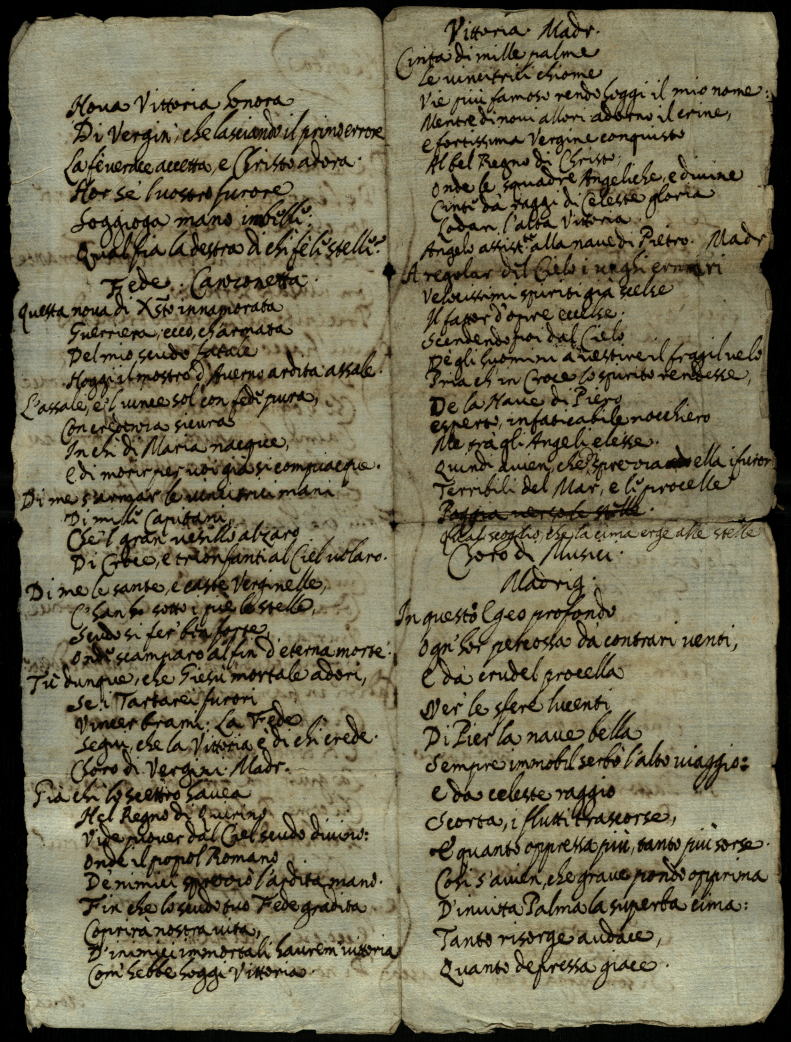 Nova Vittoria honora
Di Vergini, che lasciando il primo errore
La fé verace accetta, e Christo adora.
Hor se 'l vostro furore
Soggioga mano imbelle
Qual fia la destra di chi fé le stelle?
Fede. Canzonetta
Questa nova di Xsto innamorata
Guerriera, ecco, ch'armata
Del mio scudo fatale
Hoggi il mostro d'Averno ardita assale.
L'assale, e 'l vince sol con fede pura,
Con credenza sicura
In chi di Maria nacque,
E di morir per noi già si compiacque.
Di me s'armar le vincitrici mani
Di mille Capitani
Che 'l gran vesillo alzaro
Di Croce, e trionfanti al Ciel volaro.
Di me le sante, e caste Verginelle,
C'han hor sotto i piè le stelle,
Scudo si fer' ben forte,
Onde scamparo al fin d'eterna morte.
Tù dunque, che Giesù mortale adori,
Se i Tartarei furori
Vincer brami. La Fede
Segui, che la Vittoria è di chi crede.
Choro di Vergini. Madr.
Già chi lo scettro havea
Nel Regno di Quirino
Vide piover dal Ciel scudo divino:
Onde il popol Romano
De nimici sprezzò l'ardita mano.
Fin che lo scudo tuo Fede gradita
Coprirà nostra vita,
D'inimici immortali haurem vittoria
Com' hebbe hoggi Vittoria.
Vittoria. Madr.
Cinta di mille palme
Le vincitrici chiome
Vie più famoso rendo hoggi il mio nome:
Mentre di novi allori adorno il crine,
E fortissima Vergine conquisto
Al bel Regno di Christo,
Onde le squadre Angeliche, e divine
Cinte da raggi di Celeste gloria
Lodan l'alta Vittoria.
Angelo assistte alla nave di Pietro. Madr
A regolar del Cielo i vaghi errori
Velocissimi spiriti già scelse
Il fattor d'opre eccelse.
Scendendo poi dal Cielo
De gli huomini a vestire il fragil velo
Pria ch'in Croce lo spirito rendesse,
De la Nave di Piero
esperto, infaticabile nocchiero
Me frà gli Angeli elesse.
Quindi avien, che sprezza ella i furor
Terribili del Mar, e le procelle
Poggia verso le stelle.
Qual scoglio, che la cima erge alle stelle
Choro di Musici.
Madrig.
In questo Egeo profondo
Ogn'hor percossa da contrari venti,
E da crudel procella
Ver' le sfere lucenti
Di Pier la nave bella
Sempre immobil serbò l'alto viaggio:
E da celeste raggio
Scorta, i flutti trascorse,
E quanto oppressa più, tanto più sorse.
Così s'avien, che grave pondo opprima
D'invitta Palma la superba cima:
Tanto risorge audace,
Quanto depressa giace.